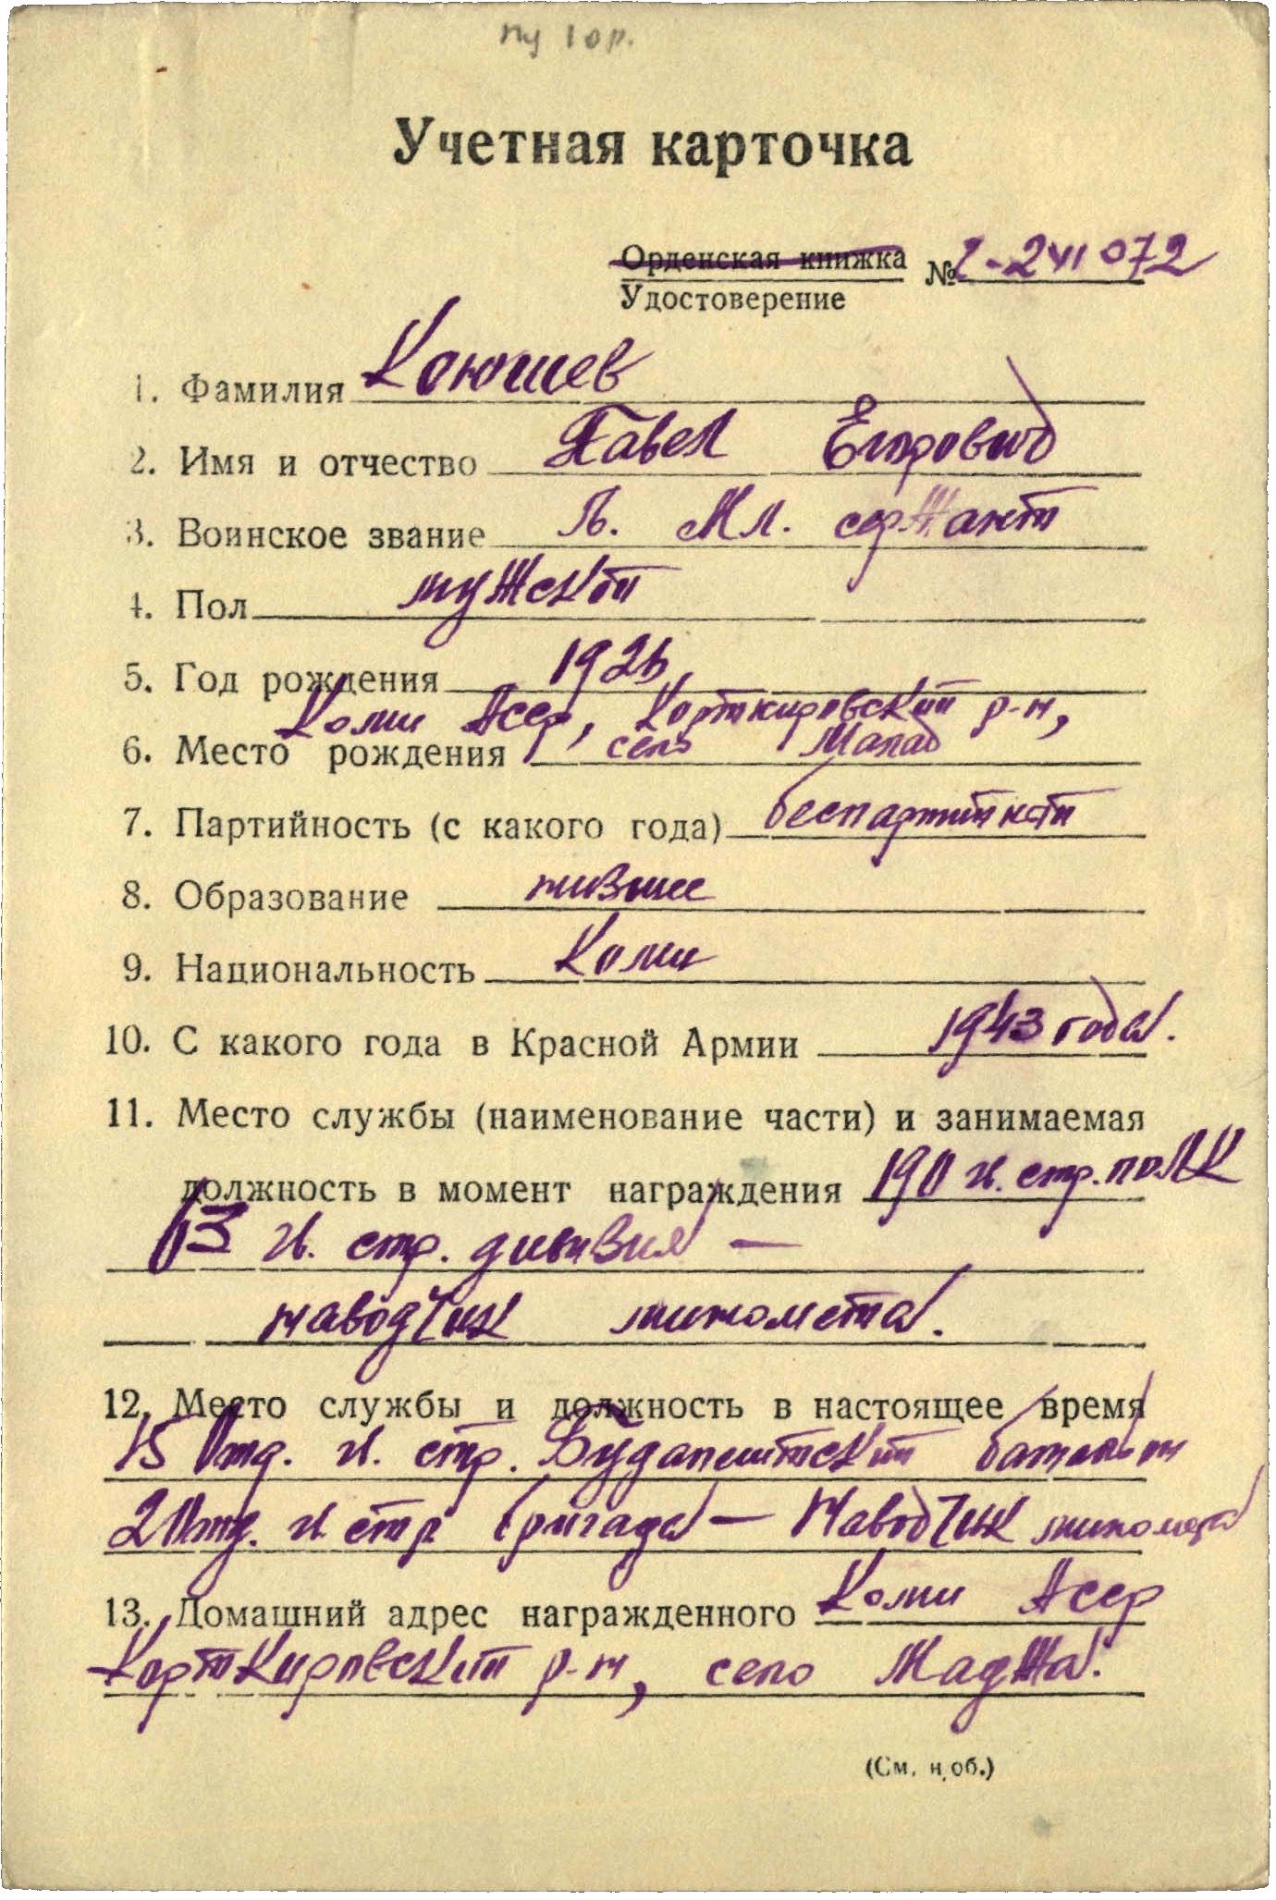 Учетная карточка
Орденская книжка
Удостоверение №
1. Фамилия Коюшев
2. Имя и отчество Павел Егорович
3. Воинское звание Гв. Мл. сержант
4. Пол мужской
5. Год рождения 1926
Коми Асср, Корткировский р-н,
6. Место рождения село
7. Партийность (с какого года) беспартийный
8. Образование низшее
9. Национальность Коми
10. С какого года в Красной Армии 1943 года.
11. Место службы (наименование части) и занимаемая
должность в момент награждения 190 гв. стр. полк
63 гв. стр. дивизия —
наводчик миномета.
12. Место службы и должность в настоящее время
15 отд. гв. стр. Будапештский батальон
21 отд. гв стр бригада — Наводчик миномета
13. Домашний адрес награжденного Коми Асср
Корткировский р-н, село Маджа.
(См. н об.)